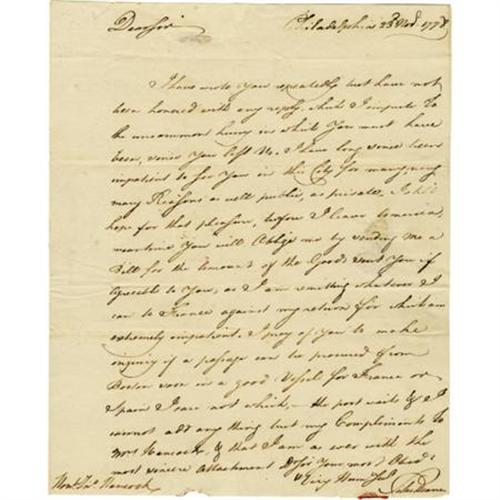 Dear Sir
Philadelphia 23d Novr. 1778
I have wrote You repeatedly but have not
been honored with any reply, which I impute to
the uncommon hurry in which You must have
been, since You left Us. I have long since been
impatient to see You in this City for many, very
many Reasons as well public, as private. I still
hope for that pleasure, before I leave America,
meantime You will Oblige me by sending me a
Bill for the Amount of the Goods sent You if
agreeable to You, as I am remitting whatever I
can to France against my return for which am
extremely impatient. I pray of You to make
enquiry if a passage can be procured from
Boston soon in a good Vessel for France or
Spain I care not which, – the post waits & I
cannot add any thing but my Compliments to
Mrs Hancock, & that I am as ever with the
most sincere Attachment Dr Sir Your most Obedt
& Very Humb Servt
S Deane
Honl. Jno Hancock